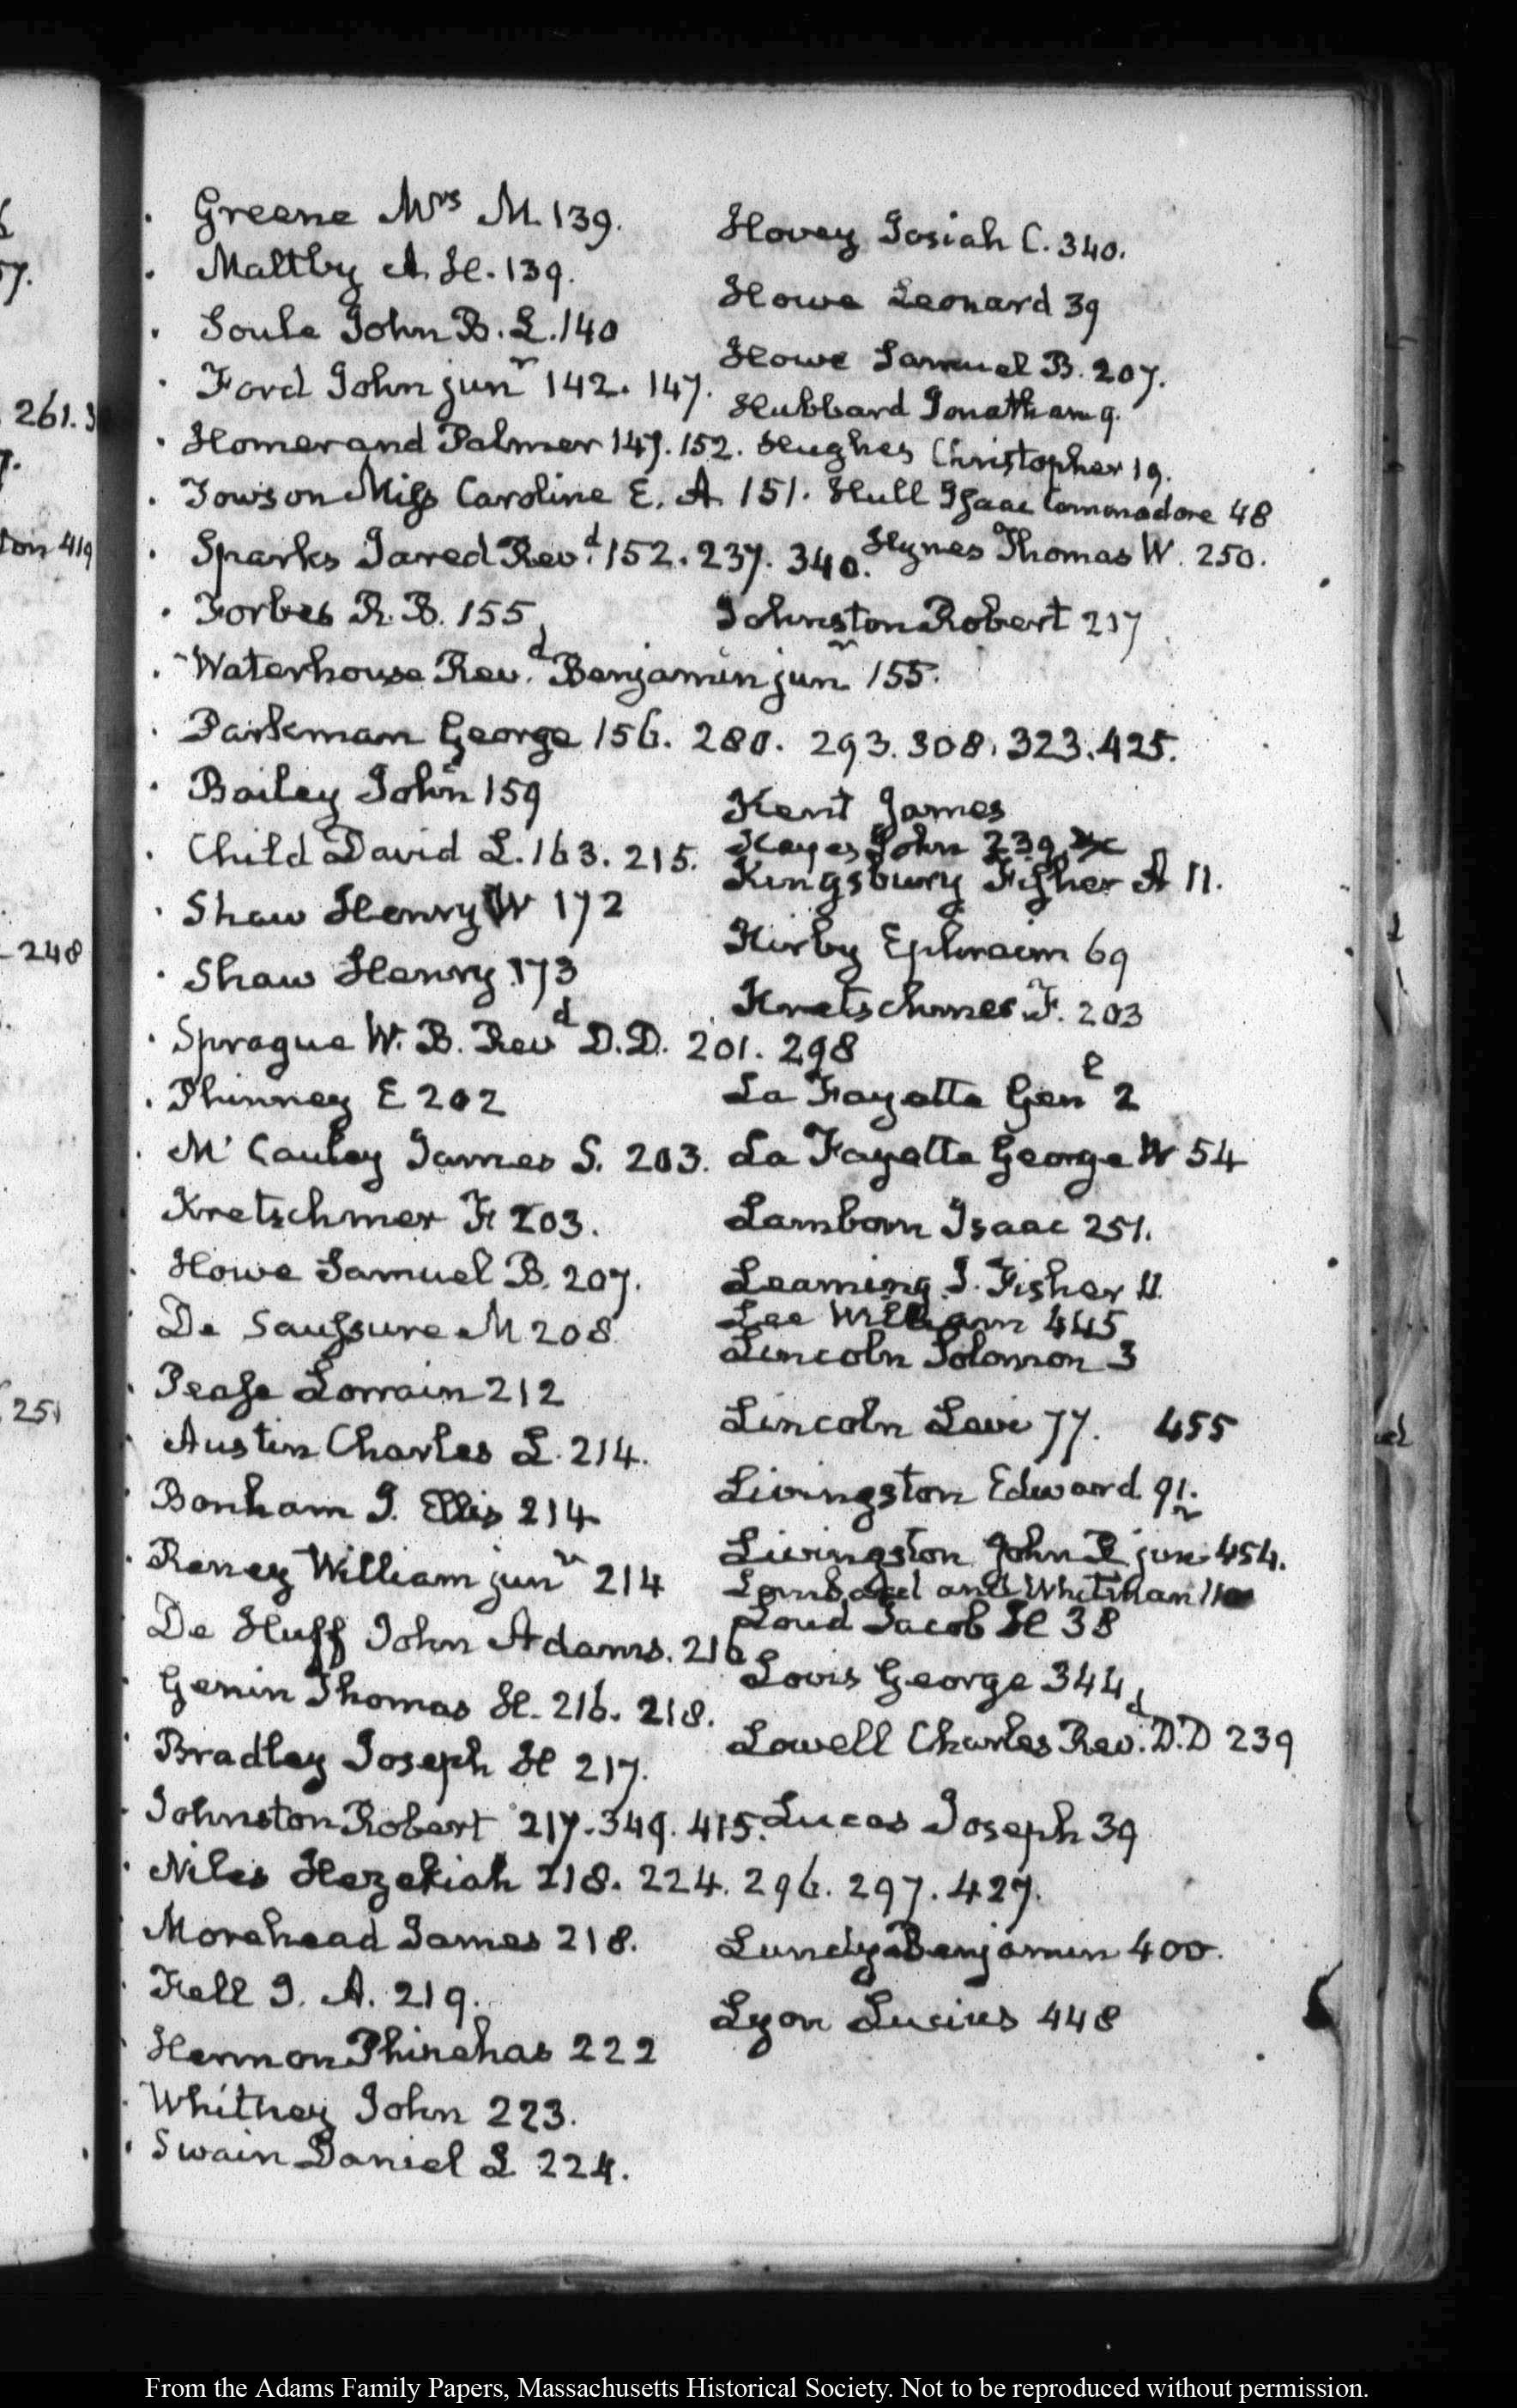 Greene Mrs M. 139.
Maltby A. H. 139.
Soule John B. L. 140
Ford John junr 142. 147.
Homer and Palmer 147. 152.
Towson Miss Caroline E. A. 151.
Sparks Jared Revd. 152. 237. 340.
Forbes R. B. 155
Waterhouse Revd. Benjamin junr 155.
Parkman George 156. 280. 293. 308. 323. 425.
Bailey John 159
Child David L. 163. 215.
Shaw Henry W 172
Shaw Henry 173
Sprague W. B. Revd D.D. 201. 298
Phinney E 202
Mc Cauley James S. 203.
Kretschmer F. 203.
Howe Samuel B. 207.
De Saussure M 208
Pease Lorrain 212
Austin Charles L. 214.
Bonham J. Ellis 214
Reney William junr 214
De Huff John Adams. 216
Genin Thomas H. 216. 218.
Bradley Joseph H 217.
Johnston Robert 217. 349. 415.
Niles Hezekiah 218. 224. 296. 297. 427.
Morehead James 218.
Fell J. A. 219.
Hermon Phinehas 222
Whitney John 223.
Swain Daniel L 224.
Hovey Josiah C. 340.
Howe Leonard 39
Howe Samuel B. 207.
Hubbard Jonatham 9.
Hughes Christopher 19.
Hull Isaac Commodore 48
Hynes Thomas W. 250.
Johnston Robert 217
Kent James
Keyes John 239
Kingsbury Fisher A 11.
Kirby Ephraim 69
Kretschmer F. 203
La Fayette Genl 2
La Fayette George W 54
Lamborn Isaac 251.
Leaming J. Fisher 11.
Lee William 445
Lincoln Solomon 3
Lincoln Levi 77. 455
Livingston Edward 91.
Livingston John R junr 454.
Lombard and Whitman
Loud Jacob H 38
Lovis George 344
Lowell Charles Revd. D.D 239
Lucas Joseph 39
Lundy Benjamin 400.
Lyon Lucius 448
261.
ton 419
248
251
From the Adams Family Papers, Massachusetts Historical Society. Not to be reproduced without permission.